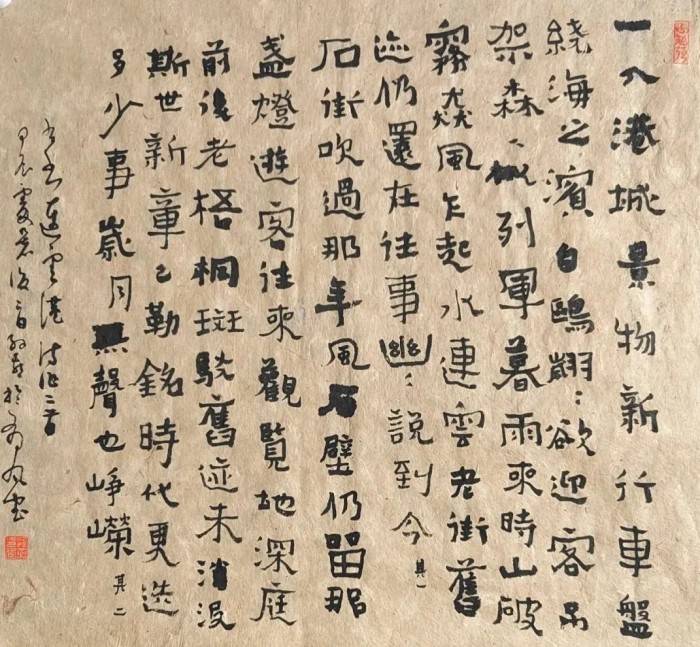 一入港城景物新行車盤
繞海之濱白鷗翩〻欲迎客吊
架森〻列軍暮雨來時山破
霧焱風乍起水連雲老街舊
迹仍還在往事幽〻說到今 其一
石街吹過那年風石壁仍留那
盞燈遊客往來觀覽地深庭
前後老梧桐斑駮舊迹未消沒
斯世新章已勒銘時代更迭
多少事歲月無聲也崢嶸 其二
連雲港詩作二首
甲辰處暑後二日